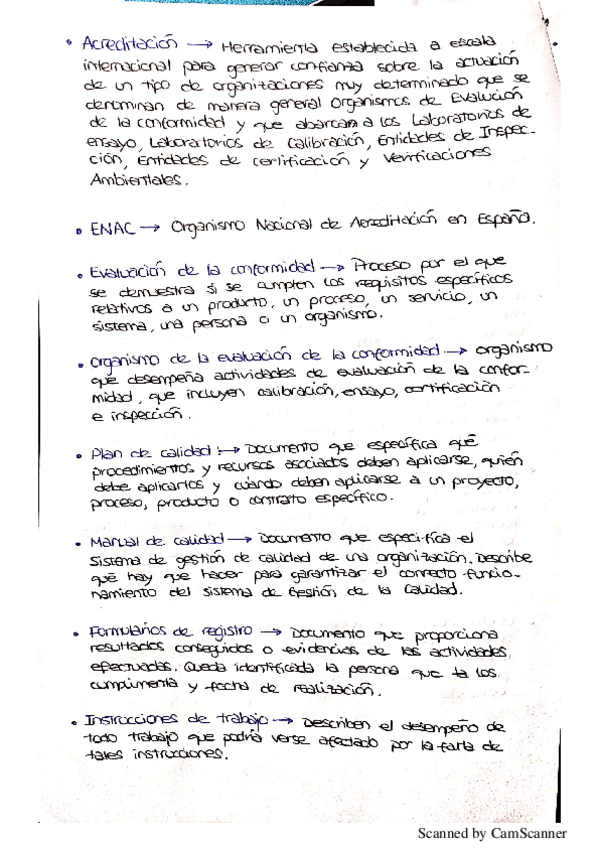 • Acreditación → Herramienta establecida a escala
internacional para generar confianza sobre la actuación
de un tipo de organizaciones muy determinado que se
denominan de manera general Organismos de Evaluación
de la conformidad y que abarcan a los Laboratorios de
ensayo, Laboratorios de Calibración, Entidades de Inspec-
ción, Entidades de certificación y Verificaciones
Ambientales.
• ENAC → Organismo Nacional de Acreditación en España.
• Evaluación de la conformidad → Proceso por el que
se demuestra si se cumplen los requisitos específicos
relativos a un producto, un proceso, un servicio, un
sistema, una persona o un organismo.
• Organismo de la evaluación de la conformidad → organismo
que desempeña actividades de evaluación de la confor-
midad, que incluyen calibración, ensayo, certificación
e inspección.
• Plan de calidad: → Documento que específica qué
procedimientos y recursos asociados deben aplicarse, quién
debe aplicarlos y cuándo deben aplicarse a un proyecto,
proceso, producto o contrato específico.
• Manual de calidad → Documento que especifica el
Sistema de gestión de calidad de una organización. Describe
qué hay que hacer para garantizar el correcto funcio-
namiento del sistema de Gestión de la Calidad.
• Formularios de registro → Documento que proporciona
resultados conseguidos o evidencias de las actividades
efectuadas. Queda identificada la persona que la los
cumplimenta y fecha de realización.
• Instrucciones de trabajo → Describen el desempeño de
todo trabajo que podría verse afectado por la falta de
tales instrucciones.
Scanned by CamScanner